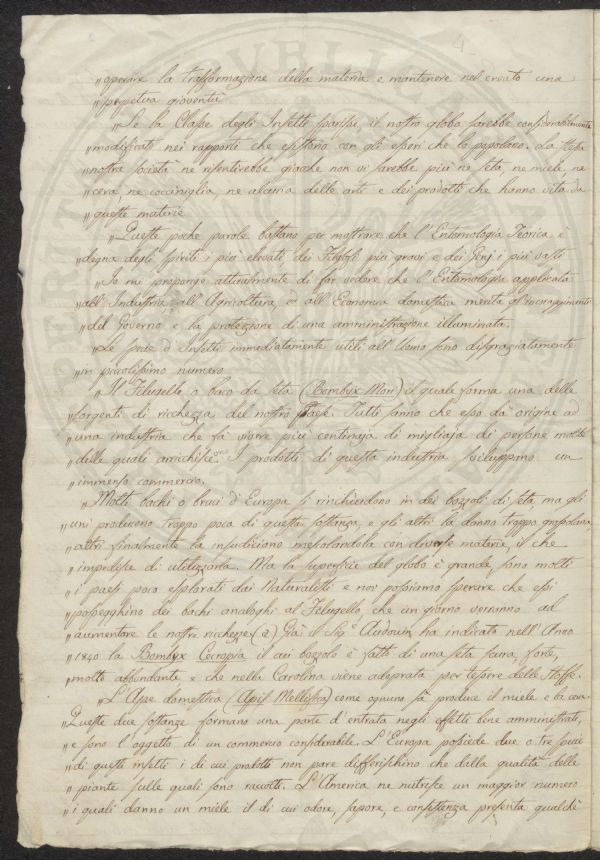 „ operare la trasformazione della materia e mantenere nel creato una
„ perpetua gioventù
„ Se la Classe degli Insetti sparisse, il nostro globo sarebbe considerabilmente
„ modificato nei rapporti che esistono con gli esseri che lo popolano. La stessa
„ nostra società ne risentirebbe giacchè non vi sarebbe più ne seta, ne miele, ne
„ cera, ne cocciniglia, ne alcuna delle arti e dei prodotti che hanno vita da
„ queste materie
„ Queste poche parole bastano per mostrare che l'Entomologia Teorica, è
„ degna degli spiriti i più elevati, dei Filosofi più gravi e dei Genj i più vasti
„ Io mi propongo attualmente di far vedere che l'Entomologia applicata
„ all'Industria, all'Agricoltura, ed all'Economia domestica merita gl'incoraggimenti
„ del Governo e la protezione di una amministrazione illuminata.
„ Le specie d'Insetti immediatamente utili all'Uomo sono disgraziatamente
„ in piccolissimo numero
„ Il Filugello o baco da seta (Bombyx Mori) il quale forma una delle
„ sorgenti di ricchezza del nostro Paese. Tutti sanno che esso dà origine ad
„ una industria che fà vivere più centinaja di migliaja di persone molte
„ delle quali arricchiscono. I prodotti di questa industria sviluppano un
„ immenso commercio.
„ Molti bachi o bruci d'Europa si rinchiudono in dei bozzoli di seta, ma gli
„ uni producono troppo poca di questa sostanza, e gli altri la danno troppo grossolana
„ altri finalmente la insudiciono mescolandola con diverse materie, il che
„ impedisce di utilizzarla. Ma la superficie del globo è grande, sono molti
„ i paesi poco esplorati dai Naturalisti e noi possiamo sperare che essi
„ possegghino dei bachi analoghi al Filugello che un giorno verranno ad
„ aumentare le nostre richezze (a) Già il Sig.e Audouin ha indicato nell'Anno
„ 1840 la Bombyx Cecropia il cui bozzolo è fatto di una seta scura, forte,
„ molto abbondante e che nella Carolina viene adoprata per tessere delle Stoffe.
„ L'Ape domestica (Apis Mellifica) come ognuno sà produce il miele e la cera.
Queste due sostanze formano una parte d'entrata negli effetti bene amministrati,
„ e sono l'oggetto di un commercio considerabile. L'Europa possiede due o tre specie
„ di questi insetti i di cui prodotti non pare differischino che dalla qualità delle
„ piante sulle quali sono raccolti. L'America ne nutrisce un maggior numero
„ i quali danno un miele il di cui odore, sapore, e consistenza presenta qualche